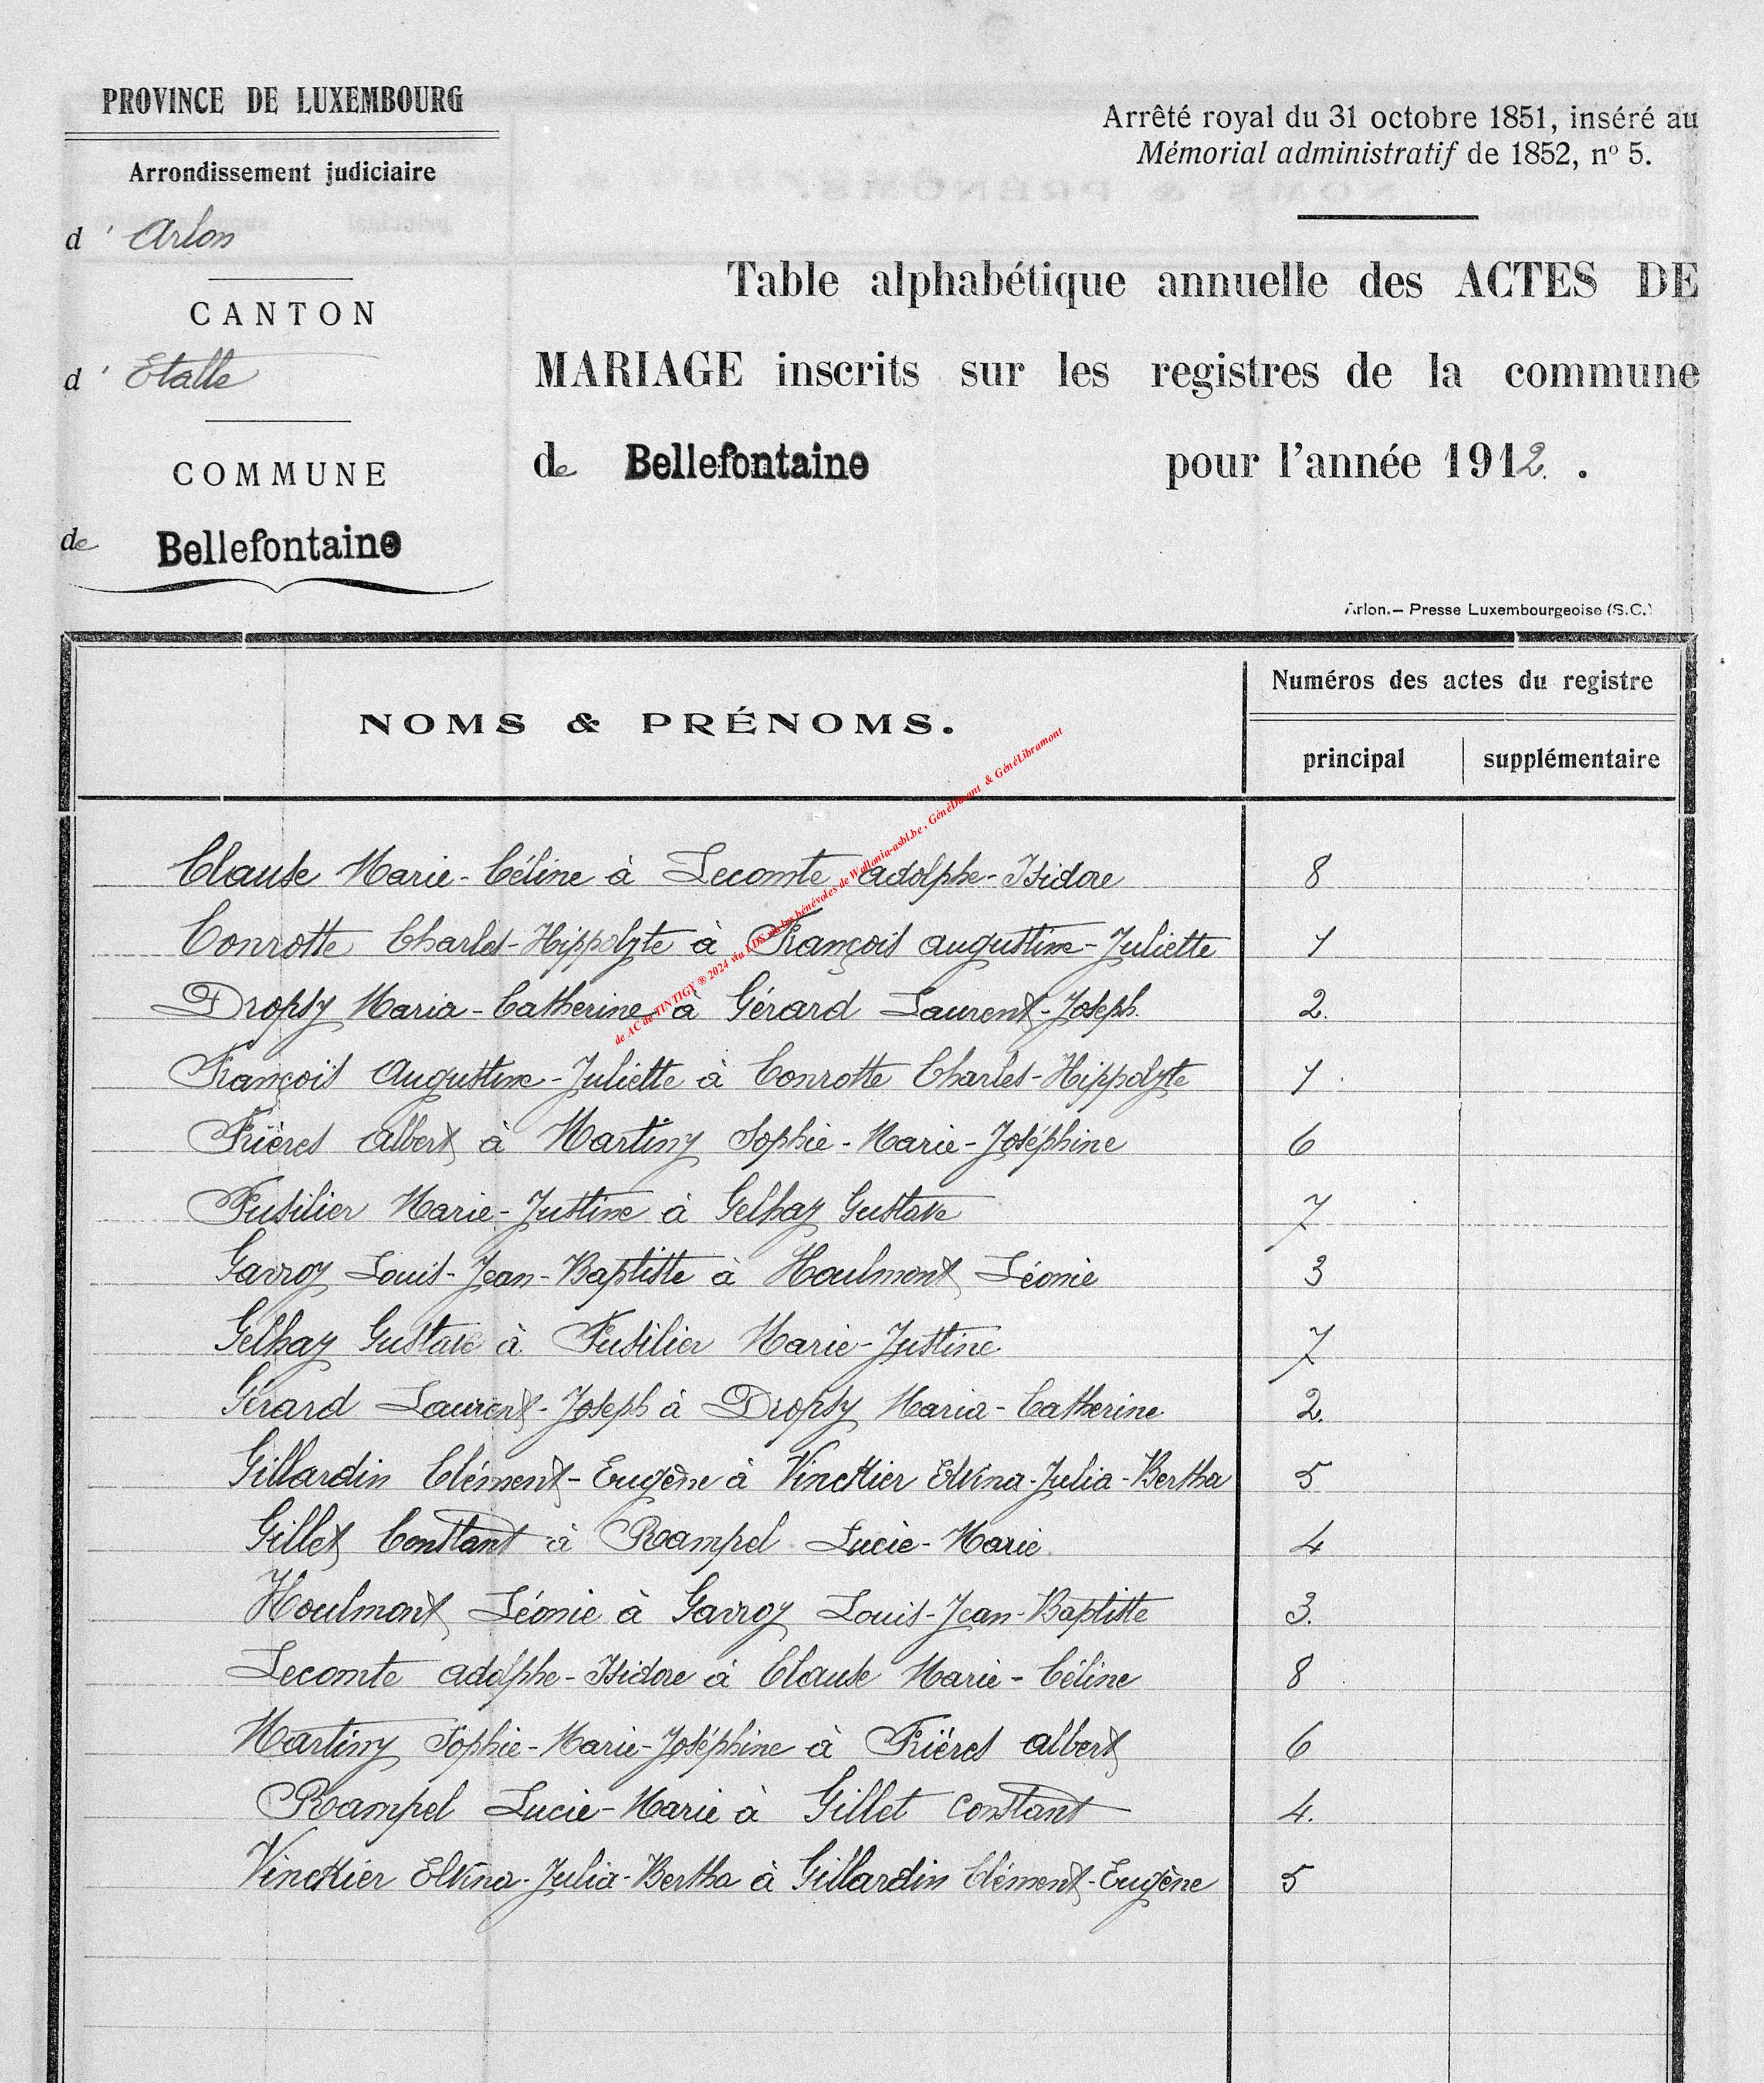 PROVINCE DE LUXEMBOURG
Arrondissement judiciaire
d' Arlon
CANTON
d' Etalle
COMMUNE
de Bellefontaine
Arrêté royal du 31 octobre 1851, inséré au
Mémorial administratif de 1852, nº 5.
Table alphabétique annuelle des ACTES DE
MARIAGE inscrits sur les registres de la commune
de Bellefontaine pour l'année 1912.
Arlon.— Presse Luxembourgeoise (S.C.)
NOMS & PRÉNOMS.
Numéros des actes du registre
principal supplémentaire
de AC de TINTIGY ® 2024 via LDS ou les bénévoles de Wallonia-asbl.be, GénéDinant & GénéLibramont
Clause Marie-Céline à Lecomte Adolphe-Isidore 8
Conrotte Charles-Hippolyte à François Augustine-Juliette 1
Dropsy Maria-Catherine à Gérard Laurent-Joseph. 2.
François Augustine-Juliette à Conrotte Charles-Hippolyte 1
Frières Albert à Martiny Sophie-Marie-Joséphine 6
Fusilier Marie-Justine à Gelhay Gustave 7
Gavroy Louis-Jean-Baptiste à Houlmont Léonie 3
Gelhay Gustave à Fusilier Marie-Justine 7
Gérard Laurent-Joseph à Dropsy Maria-Catherine 2.
Gillardin Clément-Eugène à Vinckier Elvina-Julia-Bertha 5
Gillet Constant à Rampel Lucie-Marie 4
Houlmont Léonie à Gavroy Louis-Jean-Baptiste 3.
Lecomte Adolphe-Isidore à Clause Marie-Céline 8
Martiny Sophie-Marie-Joséphine à Frières Albert 6
Rampel Lucie-Marie à Gillet Constant 4.
Vinckier Elvina-Julia-Bertha à Gillardin Clément-Eugène 5